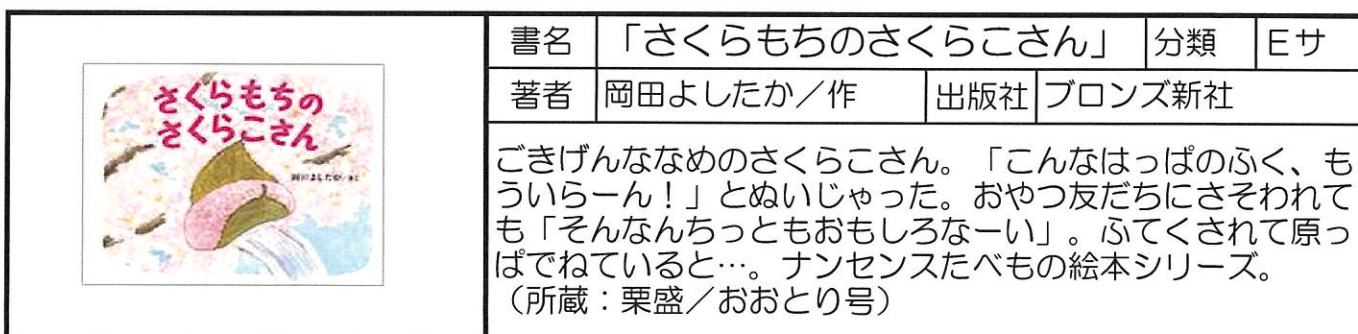 さくらもちの
さくらこさん
岡田よしたか/さく
書名 「さくらもちのさくらこさん」 分類 Eサ
著者 岡田よしたか/作 出版社 ブロンズ新社
ごきげんななめのさくらこさん。「こんなはっぱのふく、も
ういらーん!」とぬいじゃった。おやつ友だちにさそわれて
も「そんなんちっともおもしろなーい」。ふてくされて原っ
ぱでねていると…。ナンセンスたべもの絵本シリーズ。
(所蔵:栗盛/おおとり号)